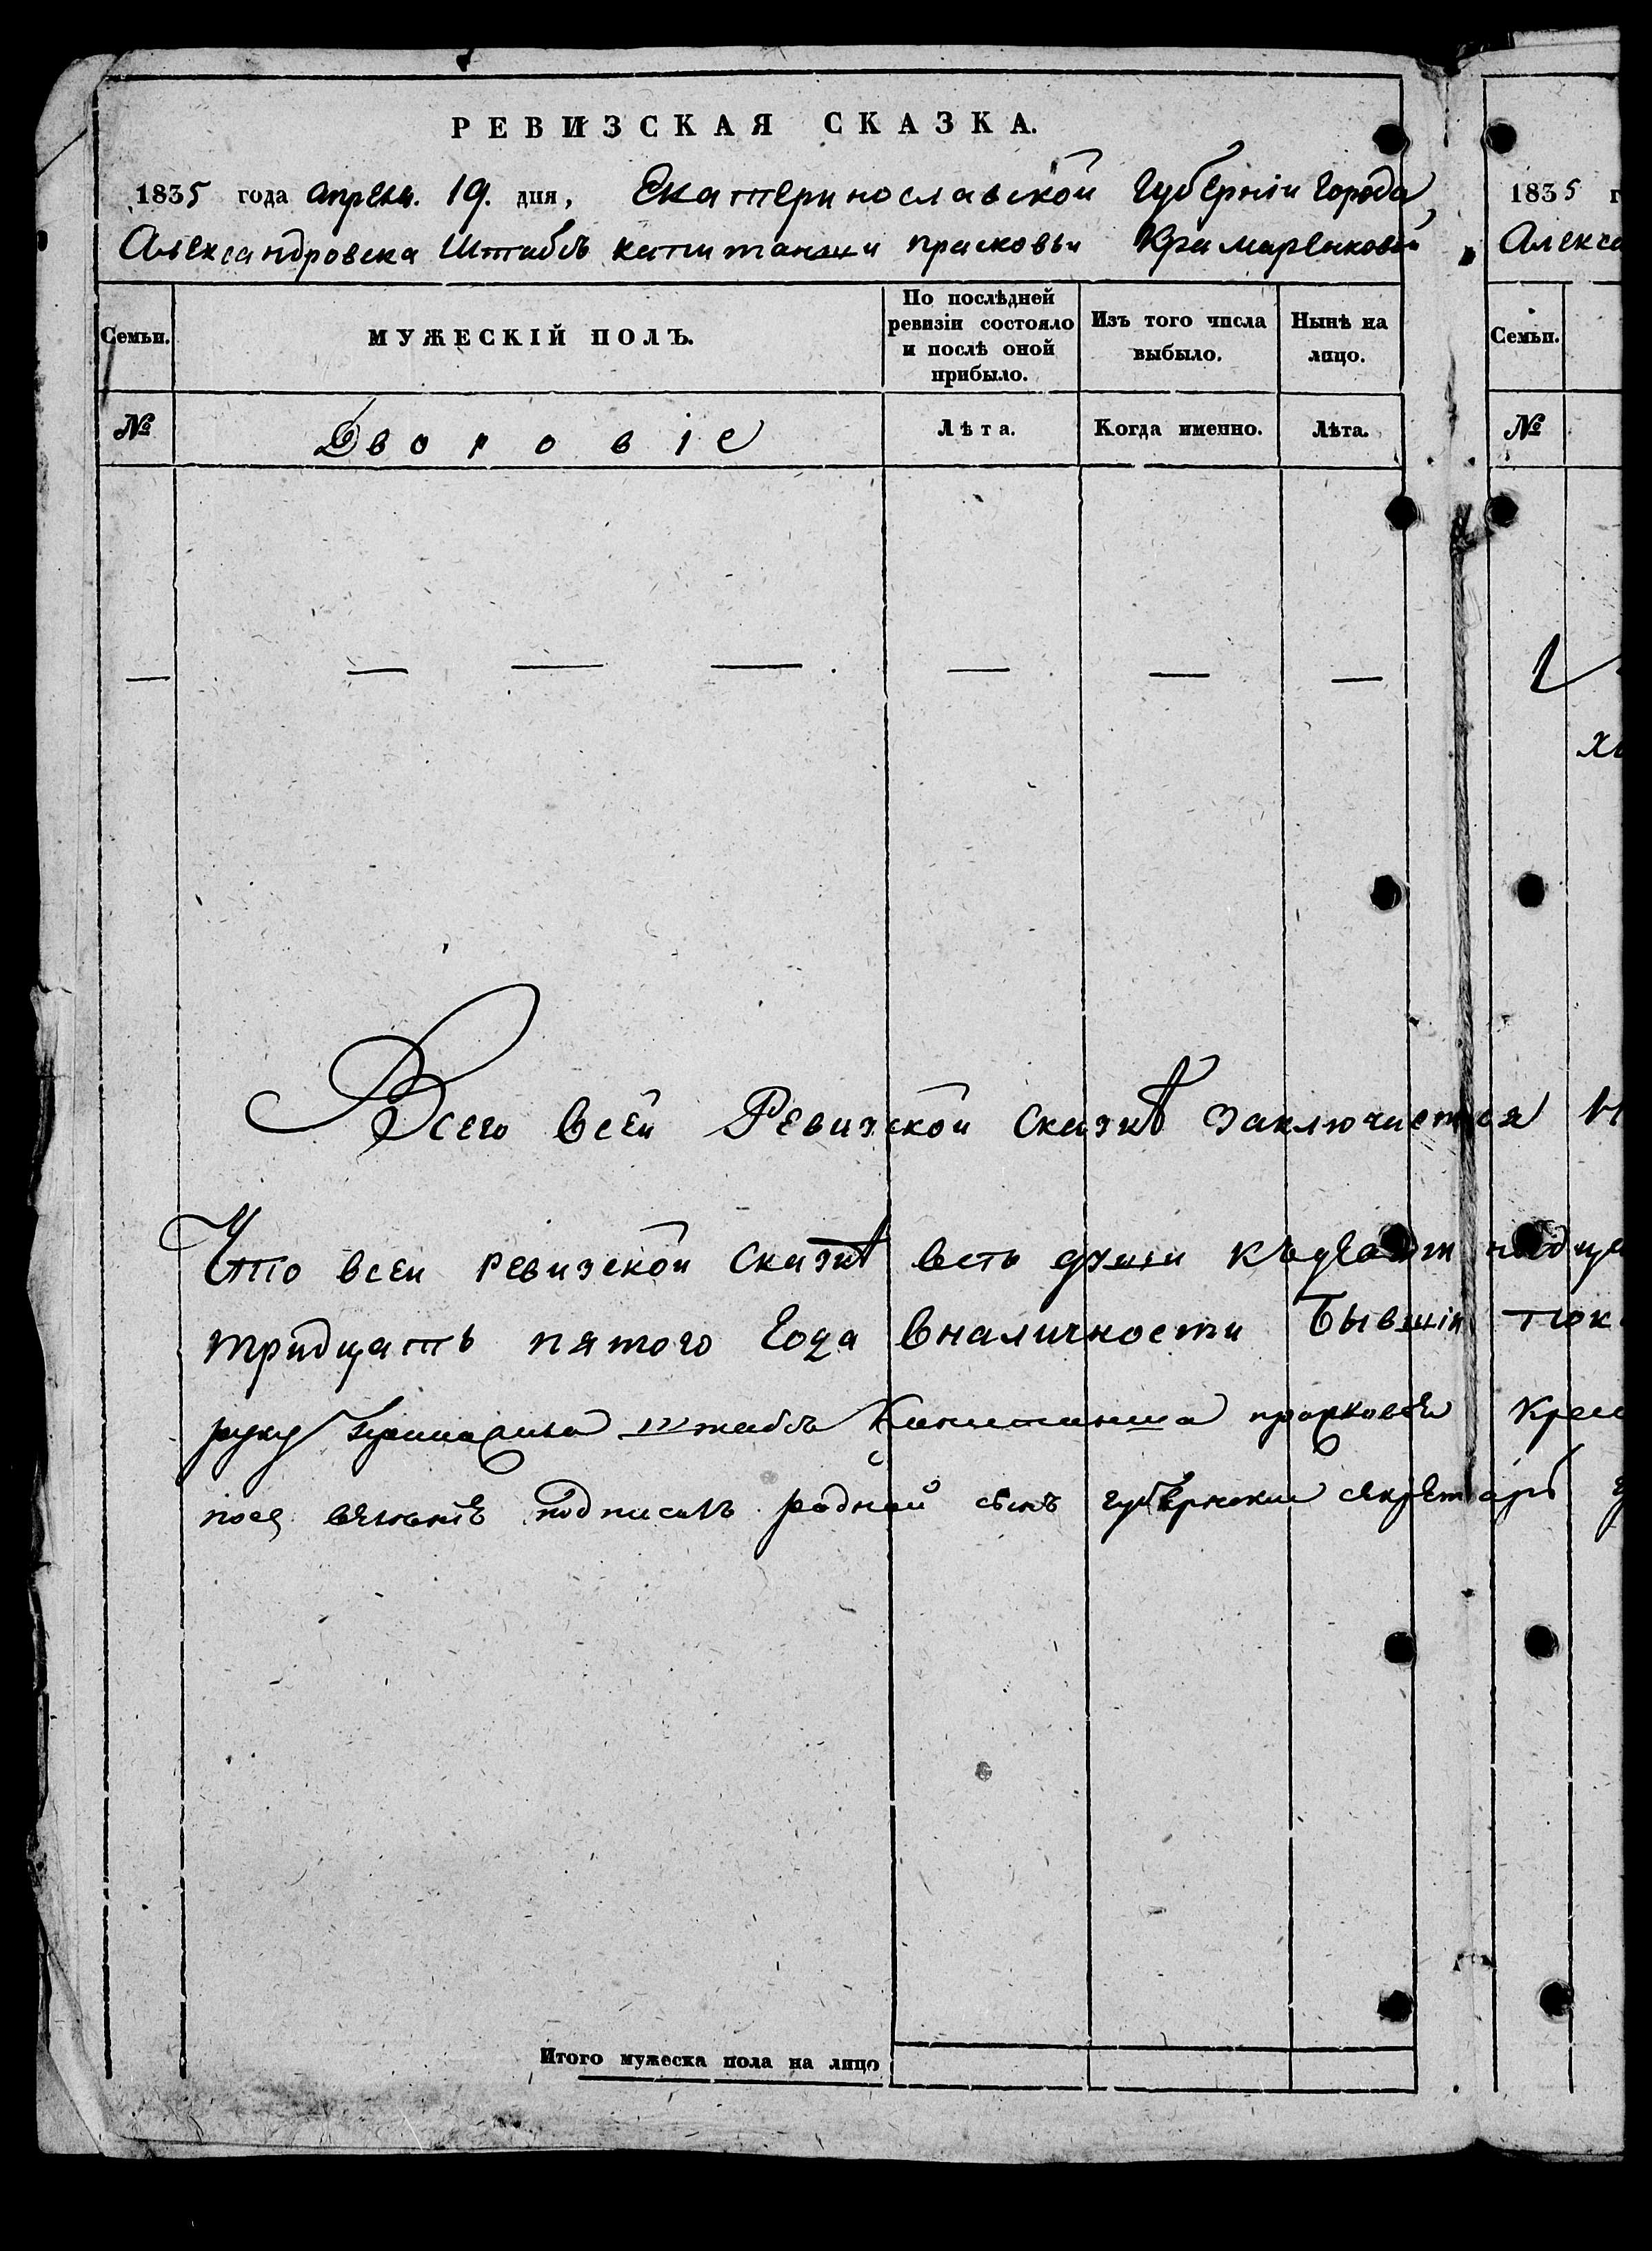 РЕВИЗСКАЯ СКАЗКА.
1835 года апреля. 19. дня, Екатеринославской Губерніи Города
Александровска Штабсъ капитанши прасковьи Крамаренковой
Семьи.
МУЖЕСКІЙ ПОЛЪ.
По послѣдней
ревизіи состояло
и послѣ оной
прибыло.
Изъ того числа
выбыло.
Нынѣ на
лицо.
№
Дворовіе
Лѣта.
Когда именно.
Лѣта.
Всего всей Ревизской Сказкѣ Заключается
Что всей ревизской Сказкѣ весть души
тридцать пятого Года вналичности Бывшіи
руку штабсъ Капитанша
подписалъ родной сынъ губернски секретарь
Итого мужеска пола на лицо
1835 г
Алекса
Семьи.
№
1